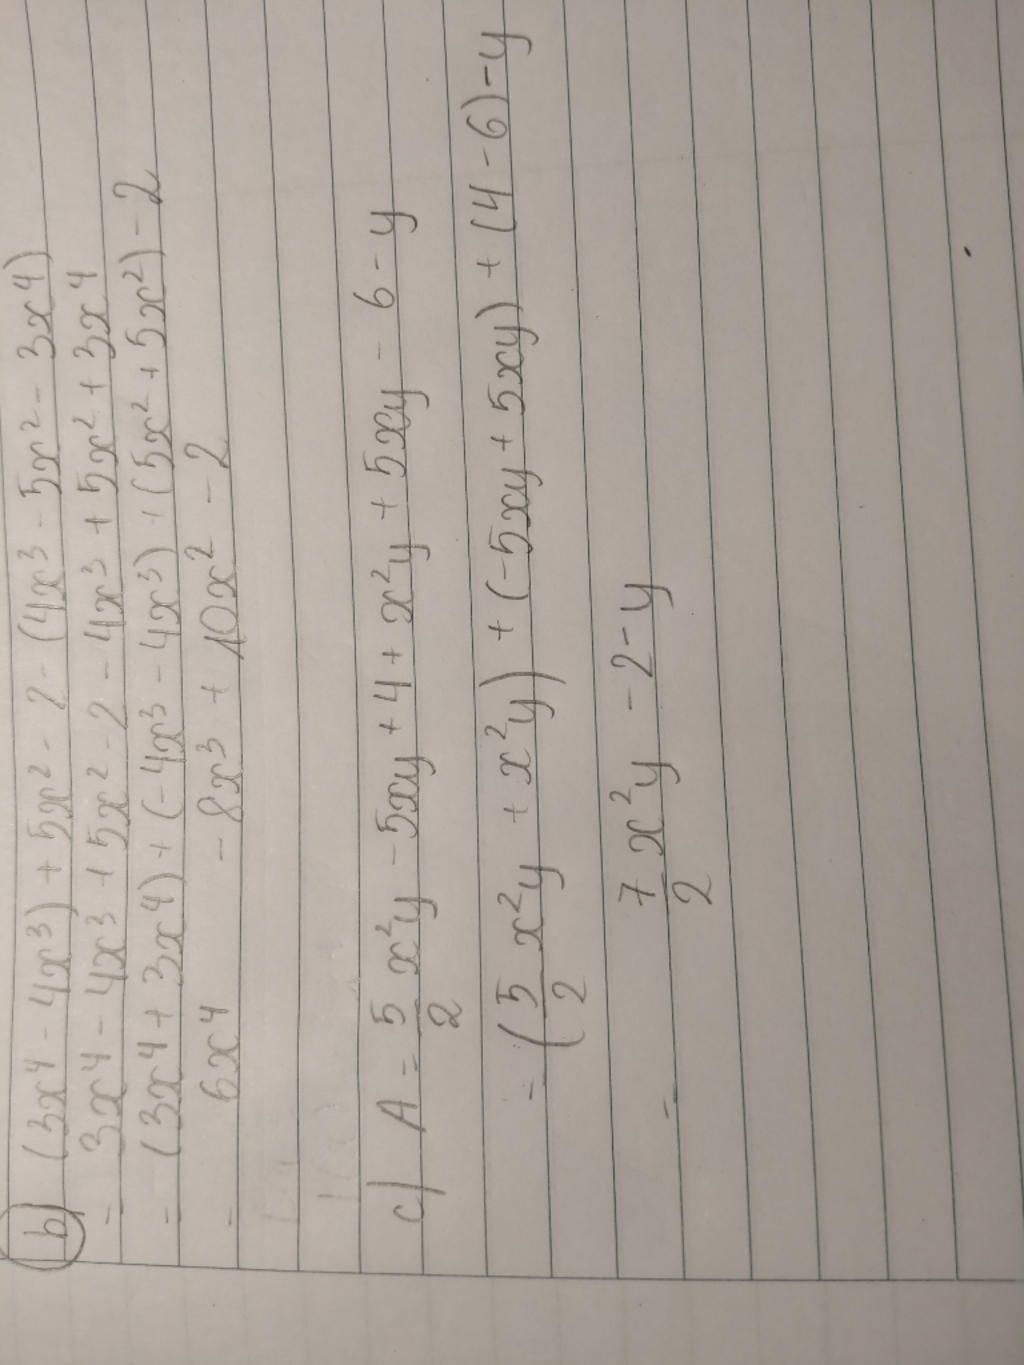 b) (3x⁴ - 4x³) + 5x² - 2 - (4x³ - 5x² - 3x⁴)
= 3x⁴ - 4x³ + 5x² - 2 - 4x³ + 5x² + 3x⁴
= (3x⁴ + 3x⁴) + (-4x³ - 4x³) + (5x² + 5x²) - 2
= 6x⁴ - 8x³ + 10x² - 2
c) A = 5/2 x²y - 5xy + 4 + x²y + 5xy - 6 - y
= (5/2 x²y + x²y) + (-5xy + 5xy) + (4 - 6) - y
= 7/2 x²y - 2 - y